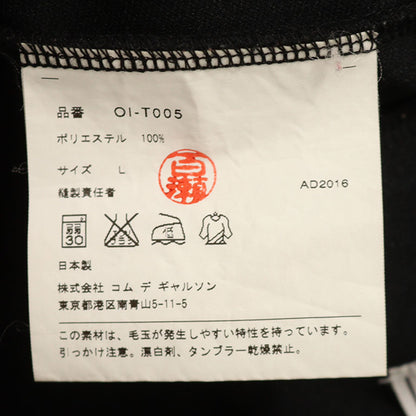 品番 OI-T005
ポリエステル 100%
サイズ L
縫製責任者
AD2016
30
日本製
株式会社 コム デ ギャルソン
東京都港区南青山5-11-5
この素材は、毛玉が発生しやすい特性を持っています。
引っかけ注意。漂白剤、タンブラー乾燥禁止。